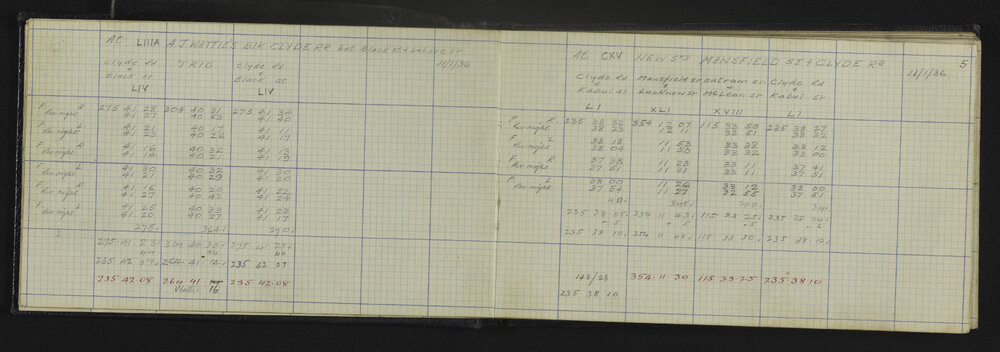 At LIIIA A.J. WATTIES B/K CLYDE RD bet Black St & Lahore St
11/1/36
Clyde Rd & Black St LIV
TRIG
Clyde Rd & Black St LIV
F R 275 41 28 304 40 31 275 41 34
Rev right 41 37 40 53 41 40
F L 41 21 40 17 41 11
Rev right 41 23 40 26 41 17
F R 41 16 40 32 41 13
Rev right 41 14 40 21 41 19
F L 41 30 40 32 21 30
Rev right 41 21 40 29 41 20
F R 41 16 40 20 41 22
Rev right 41 27 40 43 41 24
F L 41 25 40 33 41 23
Rev right 41 20 40 27 41 17
278 364 270
275 41 23 304 40 30 275 41 23
44 44 44
235 42 07 264 41 235 42 07
235 42 08 264 41 235 42 08
Watties 16
At CXV NEW STN MANSFIELD ST & CLYDE RD
5
11/1/36
Clyde Rd & Kabul St LI
Mansfield St & Lucknow St XLI
Outram St & McLean St XVIII
Clyde Rd & Kabul St LI
F R 235 38 32 354 12 07 115 33 50 235 38 27
Rev right 38 23 12 11 33 51 38 32
F L 38 18 11 53 33 38 38 12
Rev right 38 04 11 50 33 32 38 00
F R 37 38 11 28 33 11 37 41
Rev right 37 51 11 31 33 11 37 51
F L 38 00 11 26 33 12 38 00
Rev right 37 54 11 27 32 55 37 51
235 38 05 354 11 43 115 33 25 235 38 04
+ 5 + 5 + 5 - 6
235 38 10 354 11 48 115 33 30 235 38 10
143/23 354 11 30 115 33 25 235 38 10
235 38 10